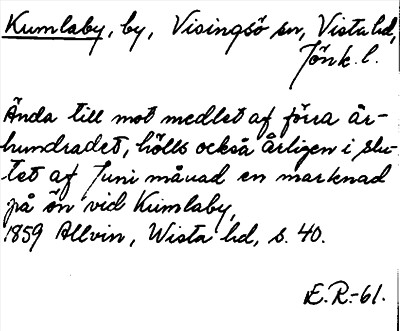 Kumlaby, by, Visingsö sn, Vista hd,
Jönk. l.
Ända till mot medlet af förra år-
hundradet, hölls också årligen i slu-
tet af Juni månad en marknad
på ön vid Kumlaby,
1859 Allvin, Wista hd, s. 40.
E.R.-61.